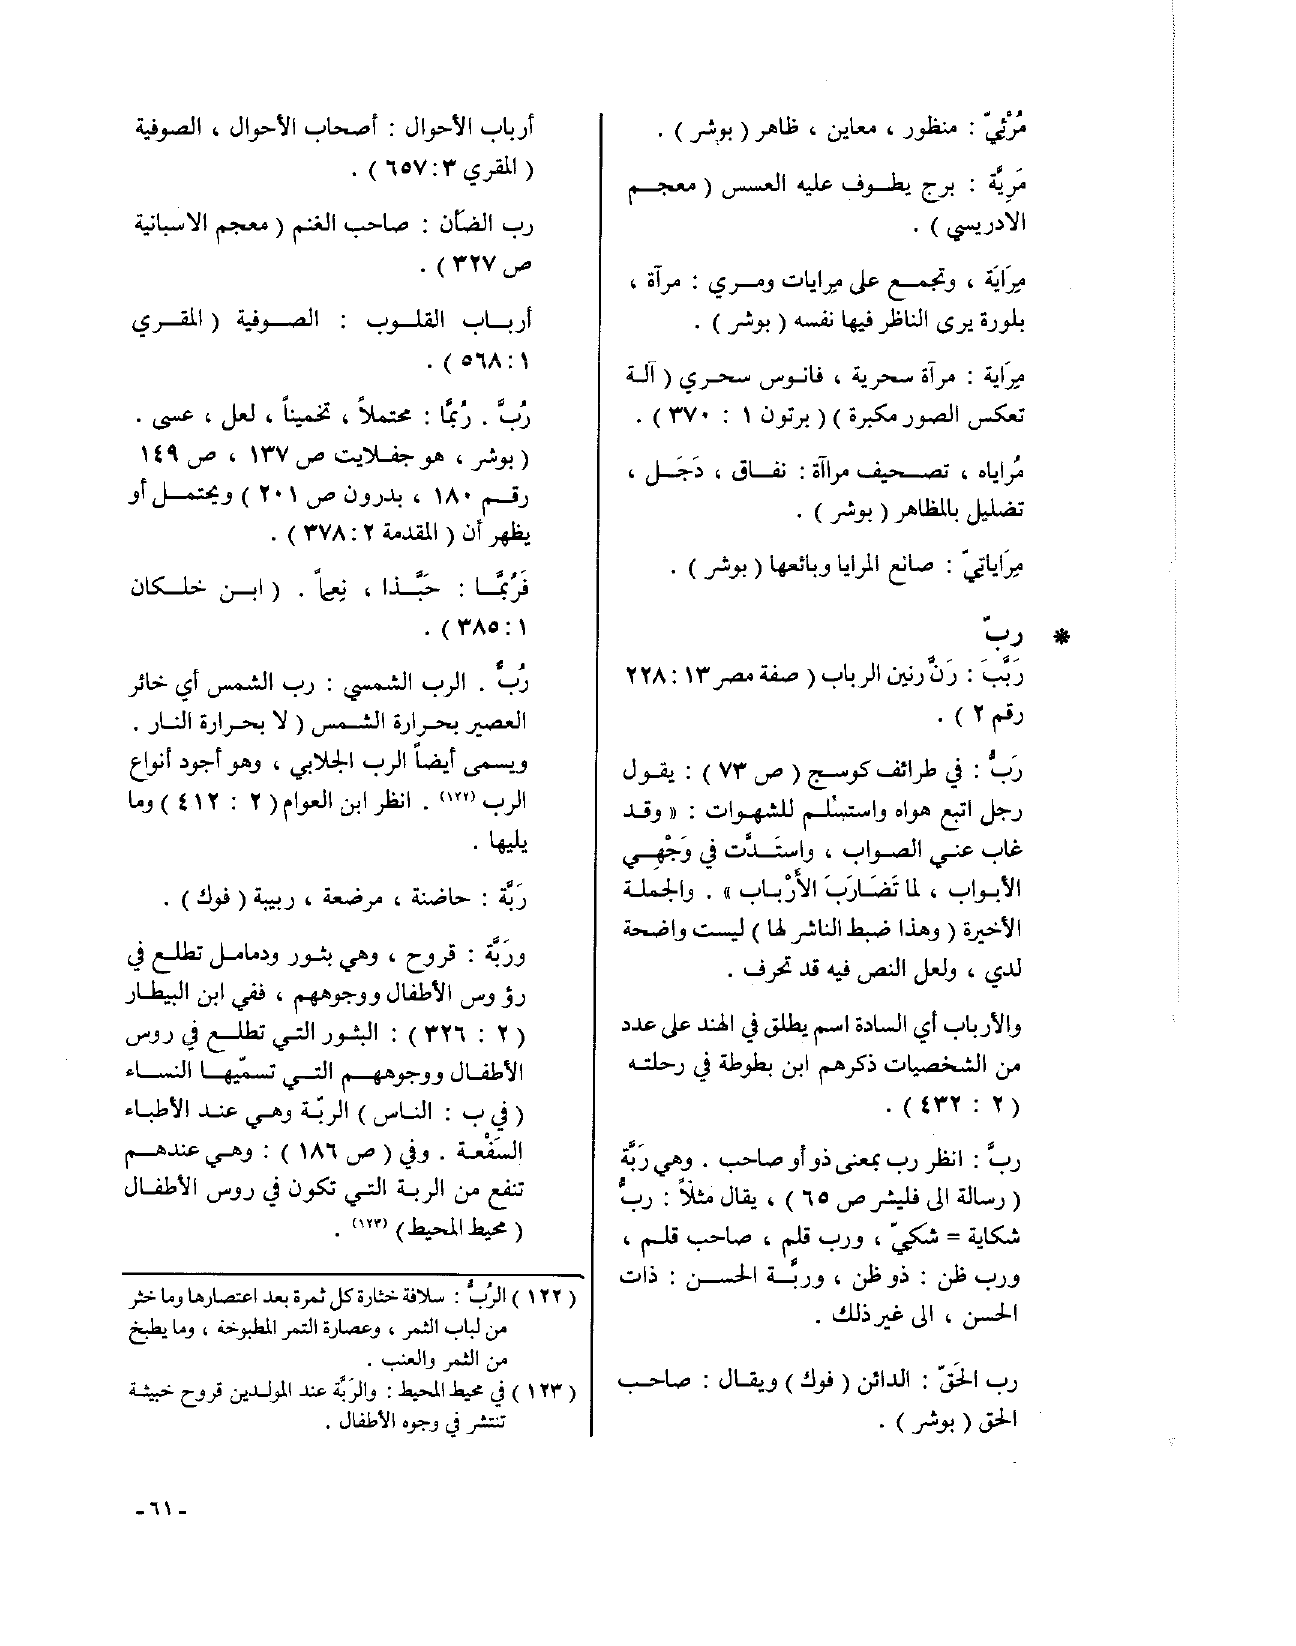 مُرْئِيّ : منظور ، معاين ، ظاهر ( بوشر ) .
مَرِيَّة : برج يطوف عليه العسس ( معجم
الادريسي ) .
مِرَايَة ، وتجمع على مرايات ومري : مرآة ،
بلورة يرى الناظر فيها نفسه ( بوشر ) .
مِرَاية : مرآة سحرية ، فانوس سحري ( آلة
تعكس الصور مكبرة ) ( برتون ١ : ٣٧٠ ) .
مُراياه ، تصحيف مراآة : نفاق ، دَجَل ،
تضليل بالمظاهر ( بوشر ) .
مِرَاياتيّ : صانع المرايا وبائعها ( بوشر ) .
* ربّ
رَبَّبَ : رَنَّ رنين الرباب ( صفة مصر ١٣ : ٢٢٨
رقم ٢ ) .
رَبٌّ : في طرائف كوسج ( ص ٧٣ ) : يقول
رجل اتبع هواه واستسْلم للشهوات : « وقد
غاب عني الصواب ، واستَدَّت في وَجْهي
الأبواب ، لما تَضَارَبَ الأَرْباب » . والجملة
الأخيرة ( وهذا ضبط الناشر لها ) ليست واضحة
لدي ، ولعل النص فيه قد تحرف .
والأرباب أي السادة اسم يطلق في الهند على عدد
من الشخصيات ذكرهم ابن بطوطة في رحلته
( ٢ : ٤٣٢ ) .
ربٌّ : انظر رب بمعنى ذو أو صاحب . وهي رَبَّة
( رسالة الى فليشر ص ٦٥ ) ، يقال مثلاً : ربٌّ
شكاية = شكيّ ، ورب قلم ، صاحب قلم ،
ورب ظن : ذو ظن ، وربَّة الحسن : ذات
الحسن ، الى غير ذلك .
رب الحَقّ : الدائن ( فوك ) ويقال : صاحب
الحق ( بوشر ) .
أرباب الأحوال : أصحاب الأحوال ، الصوفية
( المقري ٣ : ٦٥٧ ) .
رب الضأن : صاحب الغنم ( معجم الاسبانية
ص ٣٢٧ ) .
أرباب القلوب : الصوفية ( المقري
١ : ٥٦٨ ) .
رُبَّ . رُبَّمَا : محتملاً ، تخميناً ، لعل ، عسى .
( بوشر ، هو جفلايت ص ١٣٧ ، ص ١٤٩
رقم ١٨٠ ، بدرون ص ٢٠١ ) ويحتمل أو
يظهر أن ( المقدمة ٢ : ٣٧٨ ) .
فَرُبَّمَا : حَبَّذا ، نِعِماً . ( ابن خلكان
١ : ٣٨٥ ) .
رُبٌّ . الرب الشمسي : رب الشمس أي خائر
العصير بحرارة الشمس ( لا بحرارة النار .
ويسمى أيضاً الرب الجلابي ، وهو أجود أنواع
الرب (١٢٢) . انظر ابن العوام ( ٢ : ٤١٢ ) وما
يليها .
رَبَّة : حاضنة ، مرضعة ، ربيبة ( فوك ) .
ورَبَّة : قروح ، وهي بثور ودمامل تطلع في
رؤوس الأطفال ووجوههم ، ففي ابن البيطار
( ٢ : ٣٢٦ ) : البثور التي تطلع في روس
الأطفال ووجوههم التي تسمّيها النساء
( في ب : الناس ) الربّة وهي عند الأطباء
السَعْفة . وفي ( ص ١٨٦ ) : وهي عندهم
تنفع من الربة التي تكون في روس الأطفال
( محيط المحيط ) (١٢٣) .
( ١٢٢ ) الرُبُّ : سلافة خثارة كل ثمرة بعد اعتصارها وما خثر
من لباب الثمر ، وعصارة التمر المطبوخة ، وما يطبخ
من الثمر والعنب .
( ١٢٣ ) في محيط المحيط : والرَبَّة عند المولدين قروح خبيثة
تنتشر في وجوه الأطفال .
- ٦١ -